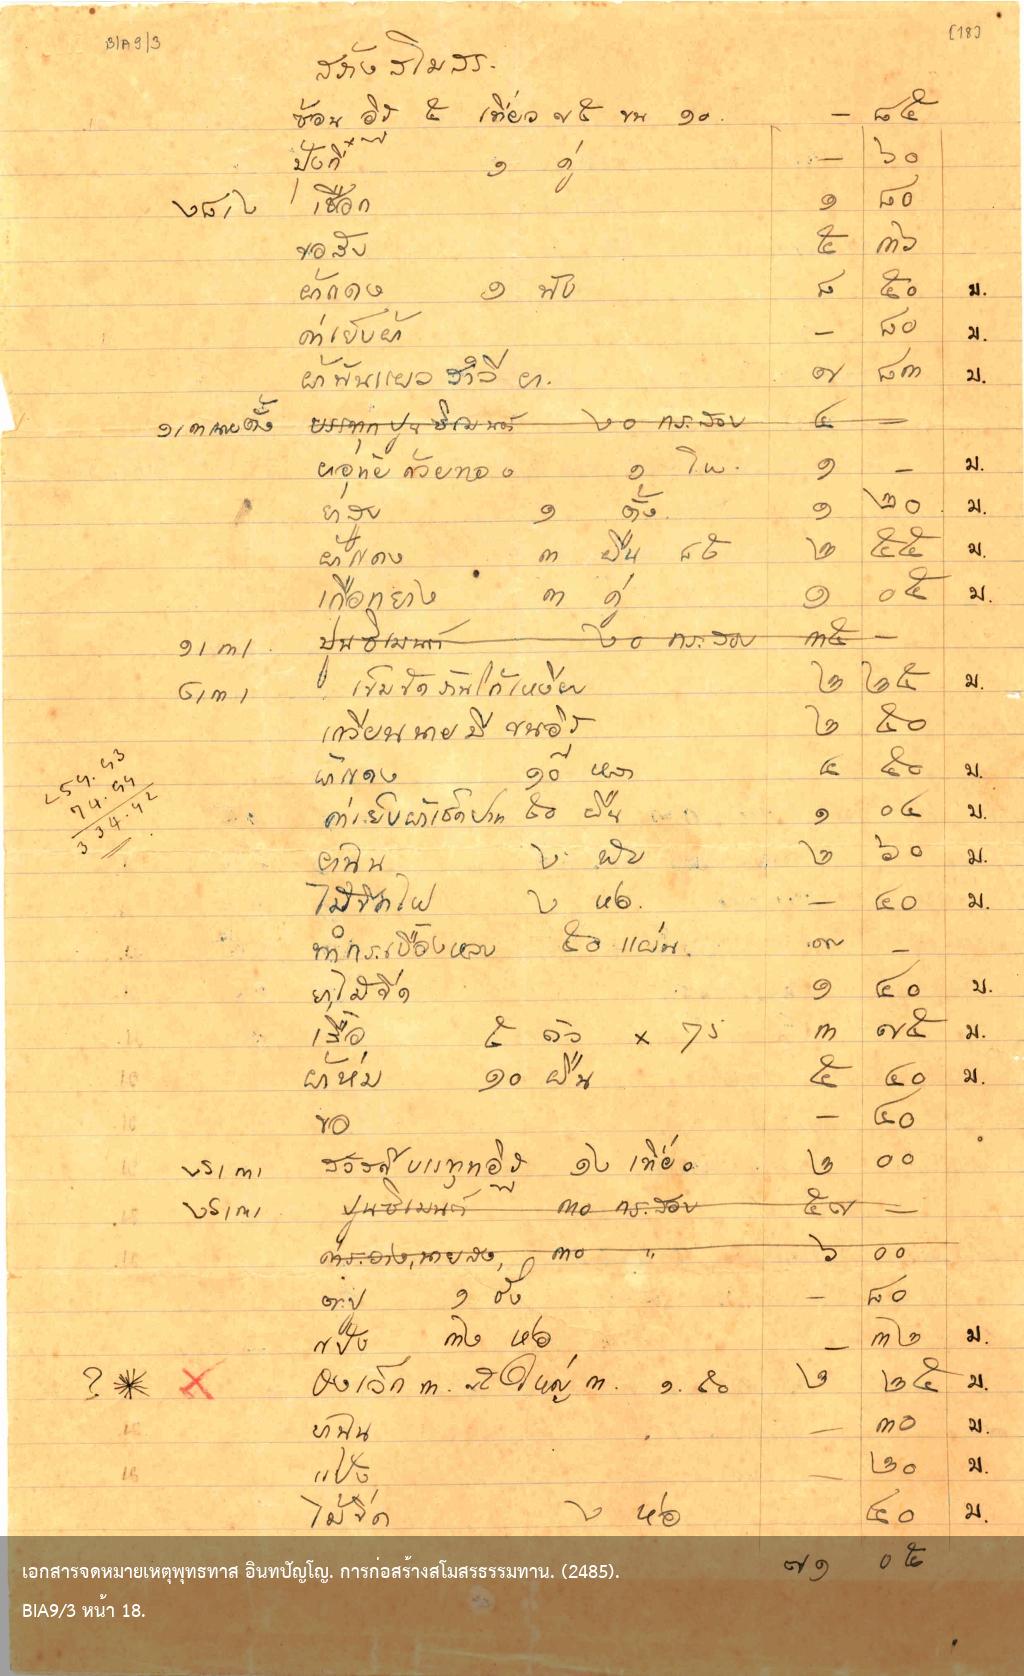 BIA9/3 [18]
สร้างสโมสร.
ซ้อน อิฐ ๕ เที่ยว ๗๕ ขน ๑๐. — ๘๕
ปุ้งกี๋ ๑ คู่ — ๖๐
๒๘/๒ เชือก ๑ ๘๐
ขอสับ ๕ ๓๖
ผ้าแดง ๑ พับ ๘ ๕๐ ม.
ค่าเย็บผ้า — ๘๐ ม.
ผ้าพันแผล สำลี ยา. ๗ ๘๓ ม.
๑/๓ บรรทุกปูนซิเมนต์ ๒๐ กระสอบ ๔ —
ยาอุทัย ถ้วยทอง ๑ โหล. ๑ — ม.
ยาสูบ ๑ ตั้ง. ๑ ๒๐ ม.
ผ้าแดง ๓ ผืน ๘๕ ๒ ๕๕ ม.
เกือกยาง ๓ คู่ ๑ ๐๕ ม.
๑/๓/ ปูนซิเมนต์ ๒๐ กระสอบ ๓๕ —
๖/๓/ เข็มขัด ๒ ๒๕ ม.
เกวียนนายมี ขนอิฐ ๒ ๕๐
ผ้าแดง ๑๐ หลา ๔ ๕๐ ม.
ค่าเย็บผ้าเช็ดปาก ๕๐ ผืน ๑ ๐๔ ม.
๒ พับ ๒ ๖๐ ม.
ไม้ขีดไฟ ๒ ห่อ. — ๔๐ ม.
ทำกระเบื้องหลบ ๕๐ แผ่น. ๗ —
ยา, ไม้ขีด ๑ ๔๐ ม.
เสื้อ ๕ ตัว × 75 ๓ ๗๕ ม.
ผ้าห่ม ๑๐ ผืน ๕ ๔๐ ม.
ขอ — ๔๐
บรรทุกอิฐ ๑๒ เที่ยว ๒ ๐๐
ปูนซิเมนต์ ๓๐ กระสอบ ๕๗ —
๓๐ " ๖ ๐๐
ตะปู ๑ ชั่ง — ๘๐
๓๒ ห่อ — ๓๒ ม.
? ๓. ใหญ่ ๓. ๑.๕๐ ๒ ๒๕ ม.
— ๓๐ ม.
แป้ง — ๒๐ ม.
ไม้ขีด ๒ ห่อ ๔๐ ม.
๗๑ ๐๕
เอกสารจดหมายเหตุพุทธทาส อินทปัญโญ. การก่อสร้างสโมสรธรรมทาน. (2485).
BIA9/3 หน้า 18.